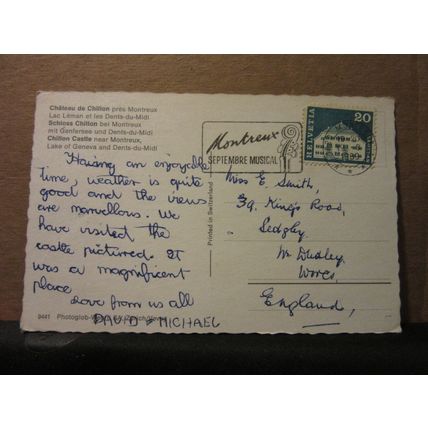 Château de Chillon près Montreux
Lac Léman et les Dents-du-Midi
Schloss Chillon bei Montreux
mit Genfersee und Dents-du-Midi
Chillon Castle near Montreux,
Lake of Geneva and Dents-du-Midi
Having an enjoyable
time, weather is quite
good and the views
are marvellous. We
have visited the
castle pictured. It
was a magnificent
place
Love from us all
DAVID & MICHAEL
9441 Photoglob-
Printed in Switzerland
Montreux
SEPTEMBRE MUSICAL
HELVETIA
20
Miss E. Smith,
39, King's Road,
Sedgley
Nr Dudley,
Worcs,
England,